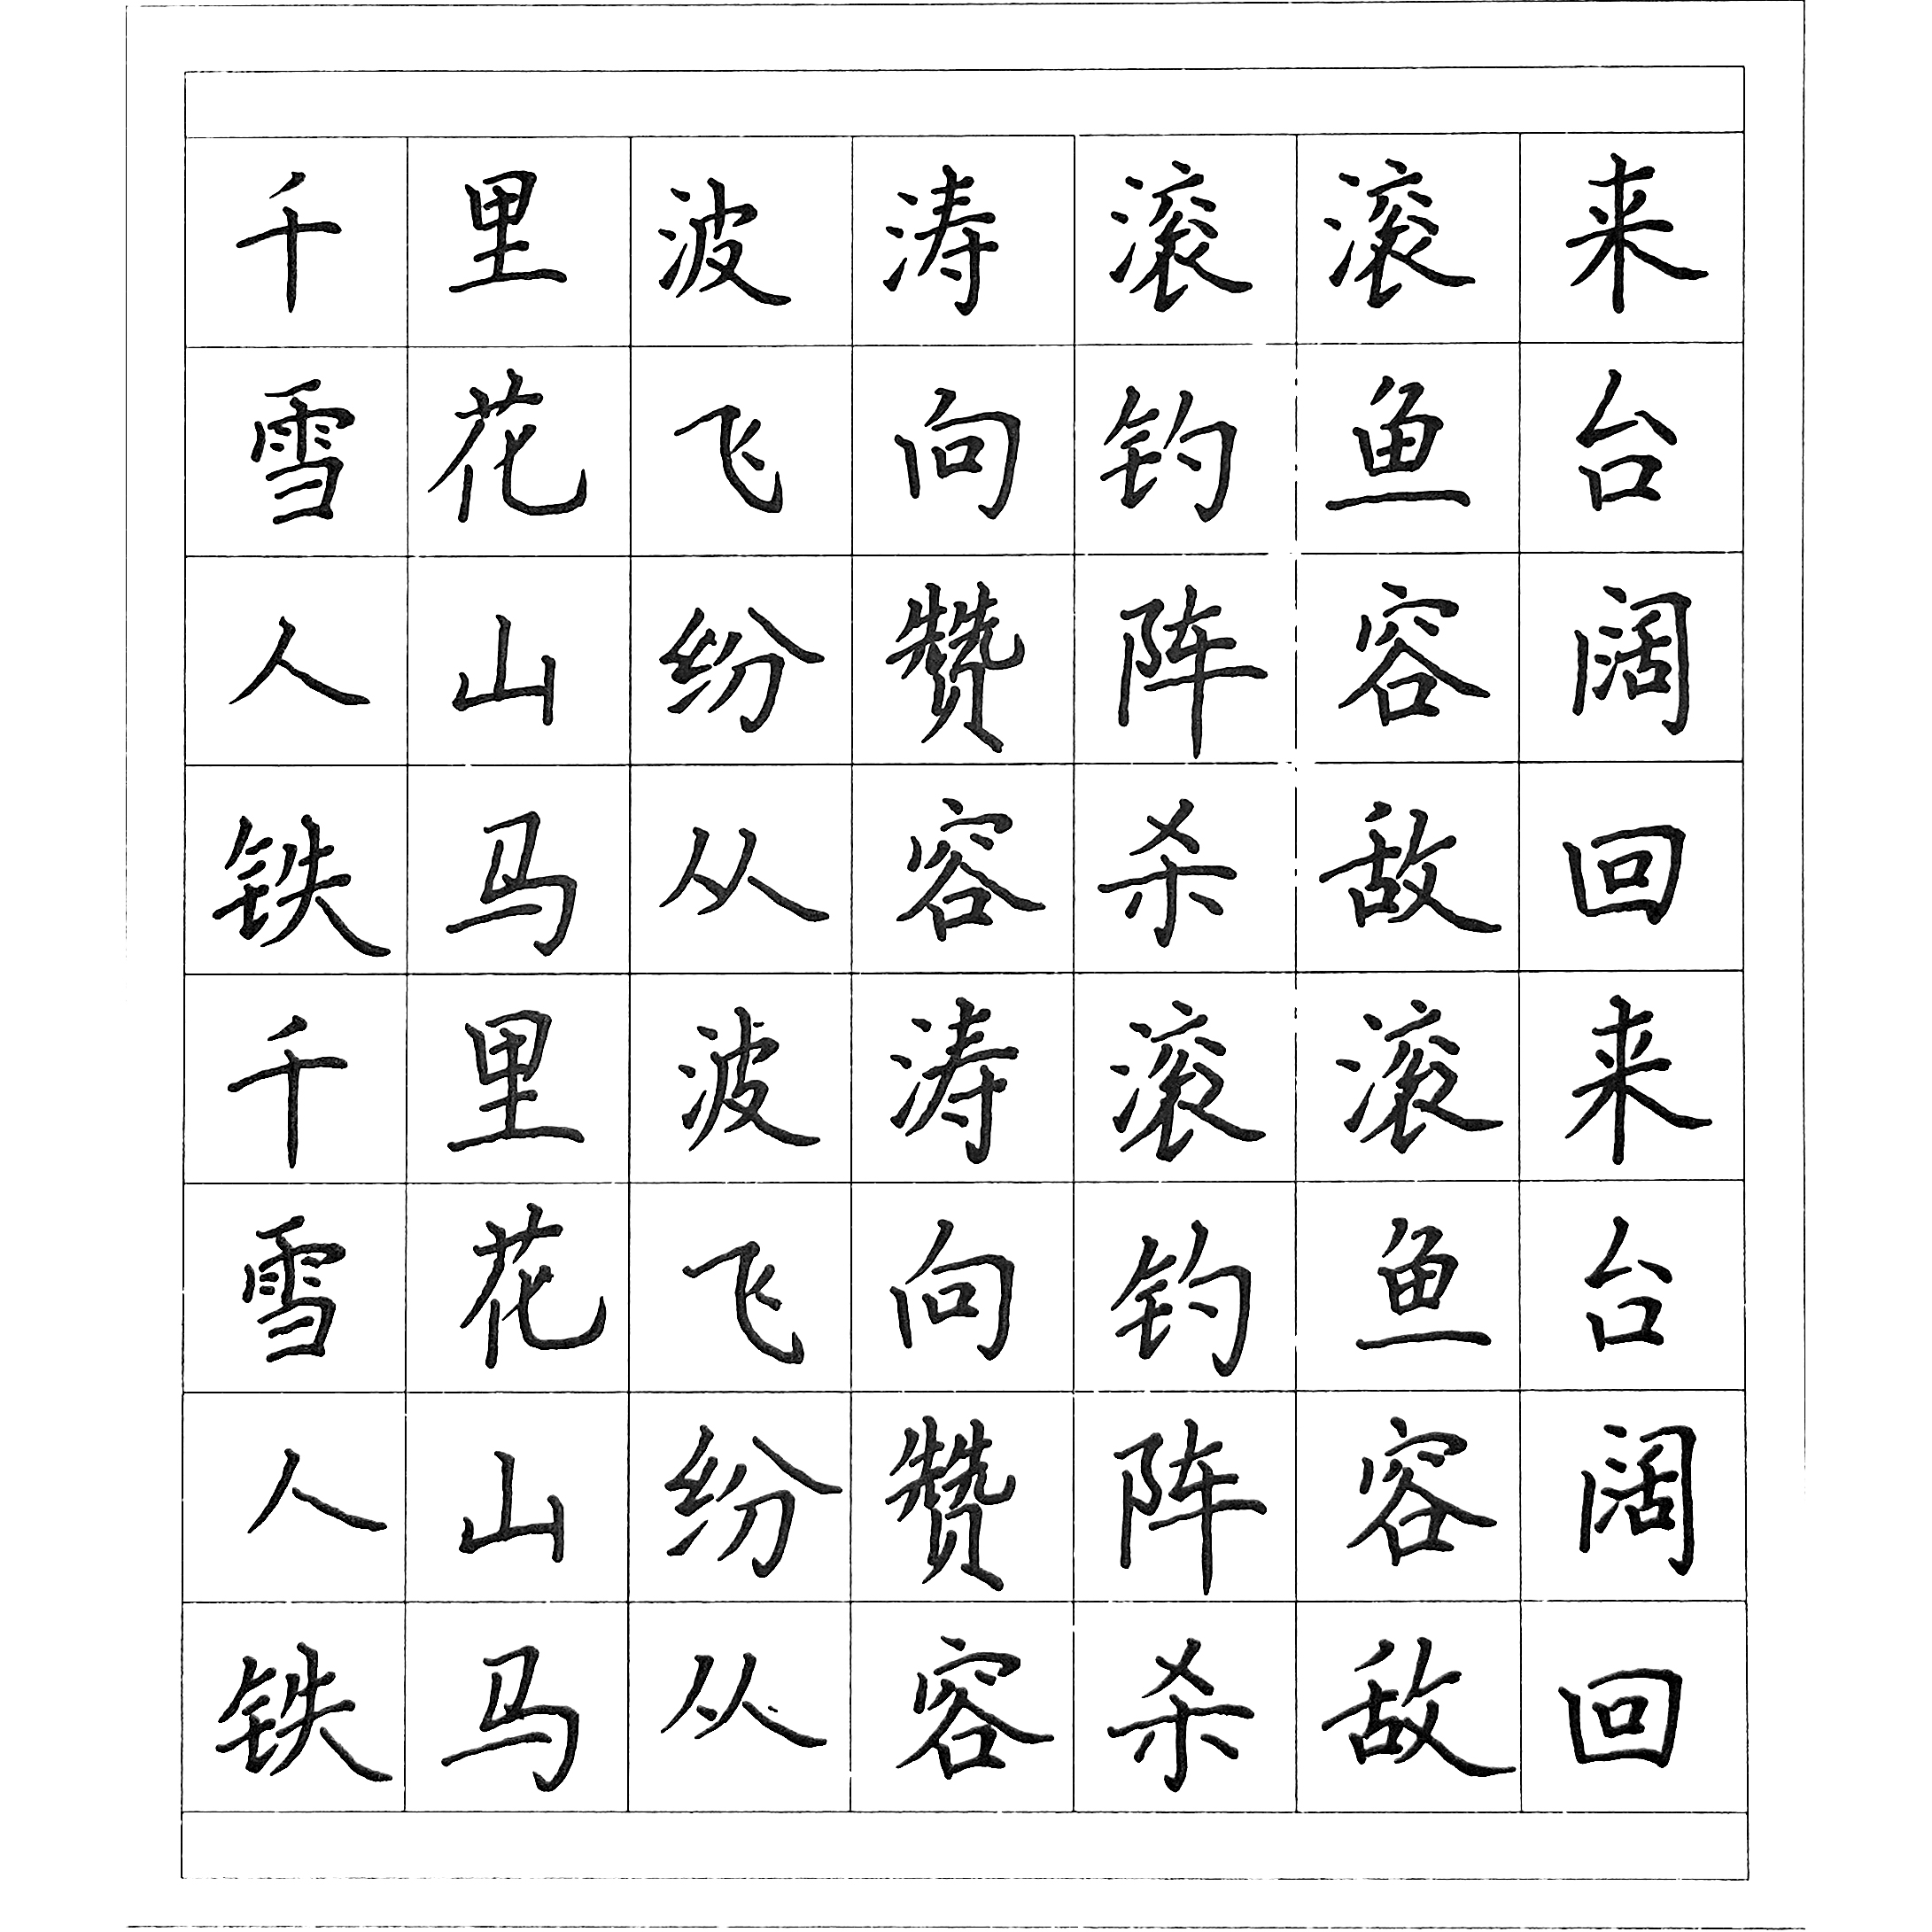 千里波涛滚滚来
雪花飞向钓鱼台
人山纷赞阵容阔
铁马从容杀敌回
千里波涛滚滚来
雪花飞向钓鱼台
人山纷赞阵容阔
铁马从容杀敌回